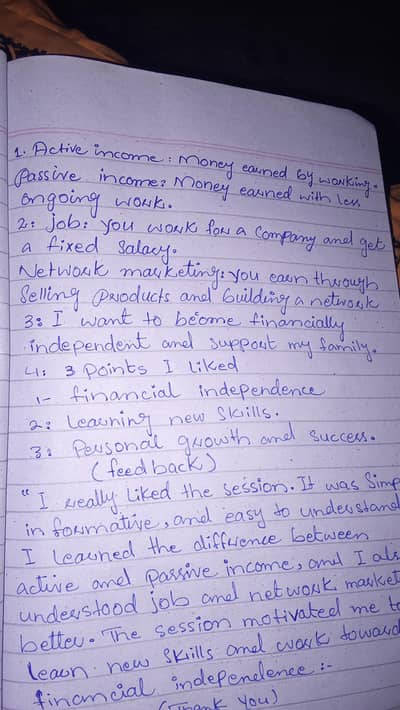 1. Active income : Money earned by working.
Passive income : Money earned with less
ongoing work.
2: job: you work for a company and get
a fixed salary.
Network marketing: you earn through
Selling products and building a network
3: I want to become financially
independent and support my family.
4: 3 points I liked
1- financial independence
2: Learning new skills.
3: Personal growth and success.
(feedback)
" I really liked the session. It was Simp
informative, and easy to understand
I learned the difference between
active and passive income, and I als
understood job and network market
better. The session motivated me to
learn new skills and work toward
financial independence :-
(Thank you)